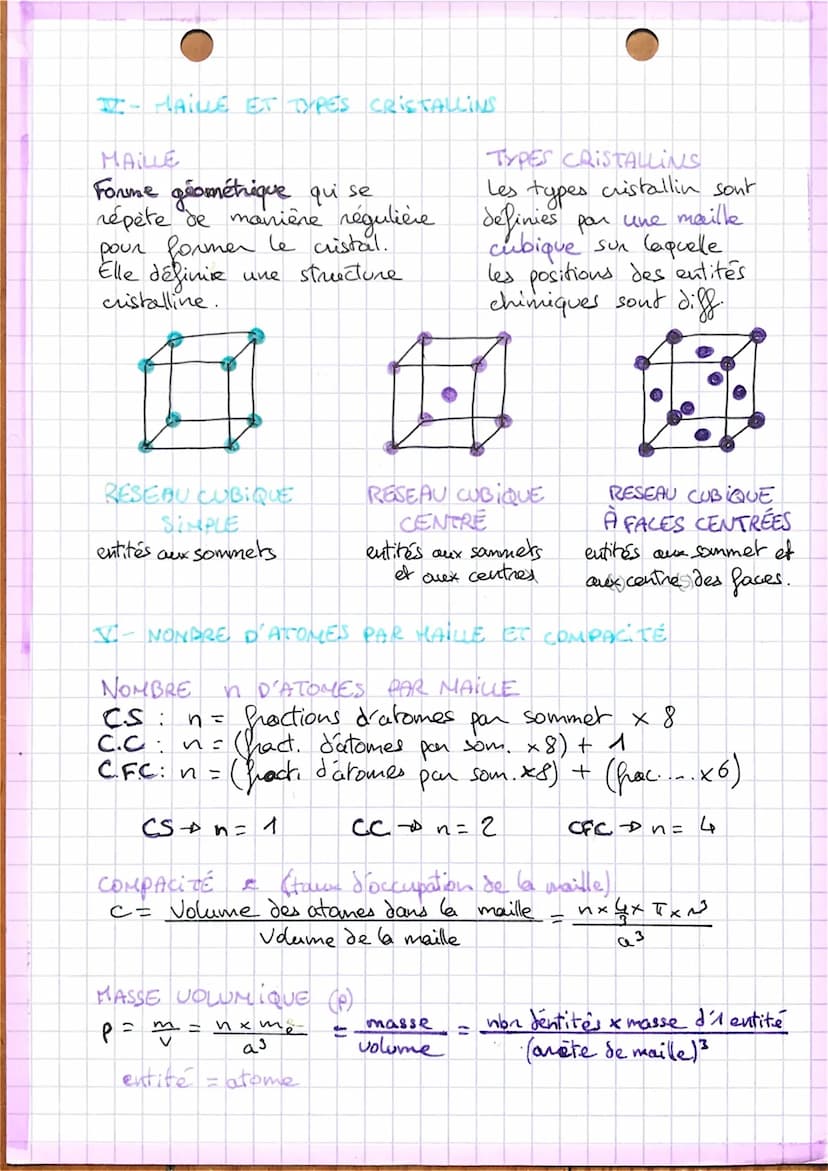 IV - MAILLE ET TYPES CRISTALLINS
MAILLE
Forme géométrique qui se
répète de manière régulière
pour former le cristal.
Elle définie une structure
cristalline.
TYPES CRISTALLINS
Les types cristallin sont
définies par une maille
cubique sur laquelle
les positions des entités
chimiques sont diff.
RESEAU CUBIQUE
SIMPLE
entités aux sommets
RESEAU CUBIQUE
CENTRÉ
entités aux sommets
et aux centres
RESEAU CUBIQUE
À FACES CENTRÉES
entités aux sommet et
aux centres des faces.
V - NOMBRE D'ATOMES PAR MAILLE ET COMPACITÉ
NOMBRE n D'ATOMES PAR MAILLE
CS : n = fractions d'atomes par sommet x 8
C.C : n = (fract. d'atomes par som. x8) + 1
C.F.C : n = (fract. d'atomes par som. x8) + (frac.... x6)
CS → n = 1 CC → n = 2 CFC → n = 4
COMPACITÉ (taux d'occupation de la maille)
C = Volume des atomes dans la maille / Volume de la maille = n x 4/3 x π x r³ / a³
MASSE VOLUMIQUE (ρ)
ρ = m/v = n x me / a³ = masse / volume = nbr d'entités x masse d'1 entité / (arête de maille)³
entité = atome